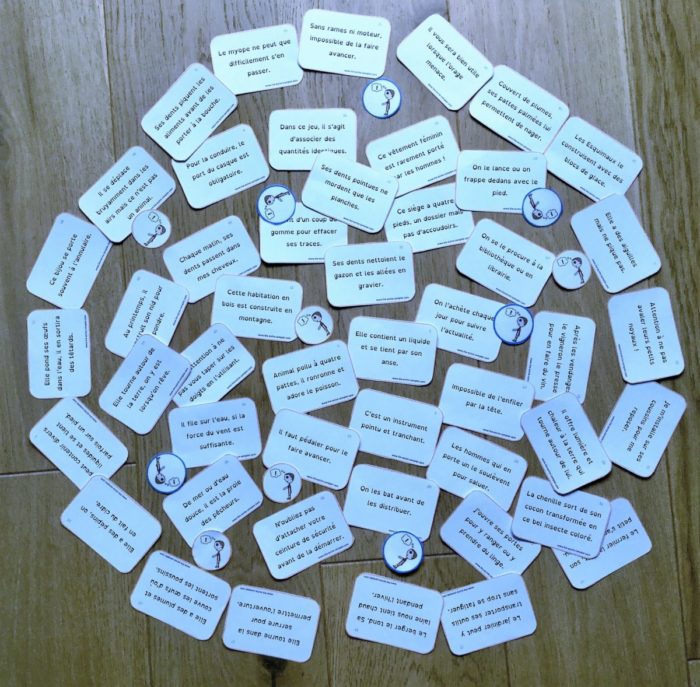 Sans rames ni moteur,
impossible de la faire
avancer.
Le myope ne peut que
difficilement s'en
passer.
Il vous sera bien utile
lorsque l'orage
menace.
Ses dents piquent les
aliments avant de les
porter à la bouche.
Couvert de plumes,
ses pattes palmées lui
permettent de nager.
Dans ce jeu, il s'agit
d'associer des
quantités identiques.
Ce vêtement féminin
est rarement porté
par les hommes !
Les Esquimaux le
construisent avec des
blocs de glace.
Pour la conduire, le
port du casque est
obligatoire.
Il se déplace
bruyamment dans les
airs mais ce n'est pas
un animal.
Ses dents pointues ne
mordent que les
planches.
On le lance ou on
frappe dedans avec le
pied.
d'un coup de
gomme pour effacer
ses traces.
Ce siège a quatre
pieds, un dossier mais
pas d'accoudoirs.
Elle a des aiguilles
mais ne pique pas.
Ce bijou se porte
souvent à l'annulaire.
Chaque matin, ses
dents passent dans
mes cheveux.
Ses dents nettoient le
gazon et les allées en
gravier.
On se le procure à la
bibliothèque ou en
librairie.
Au printemps, il
son nid pour
pondre.
Cette habitation en
bois est construite en
montagne.
On l'achète chaque
jour pour suivre
l'actualité.
Après les vendanges,
le vigneron le presse
pour en faire du vin.
Attention à ne pas
avaler leurs petits
noyaux !
Elle pond ses œufs
dans l'eau, il en sortira
des têtards.
Elle tourne autour de
la terre, on y est
lorsqu'on rêve.
Attention à ne
pas vous taper sur les
doigts en l'utilisant.
Animal poilu à quatre
pattes, il ronronne et
adore le poisson.
Elle contient un liquide
et se tient par son
anse.
Impossible de l'enfiler
par la tête.
Il offre lumière et
chaleur à la terre qui
tourne autour de lui.
Je m'installe sur ses
coussins pour me
reposer.
Peut contenir divers
liquides et se tient
parfois sur un pied.
Il file sur l'eau, si la
force du vent est
suffisante.
Il faut pédaler pour le
faire avancer.
C'est un instrument
pointu et tranchant.
Les hommes qui en
porte un le soulèvent
pour saluer.
La chenille sort de son
cocon transformée en
ce bel insecte coloré.
Elle a des pépins, on
en fait du cidre.
De mer ou d'eau
douce, il est la proie
des pêcheurs.
N'oubliez pas
d'attacher votre
ceinture de sécurité
avant de la démarrer.
On les bat avant de
les distribuer.
J'ouvre ses portes
pour y ranger ou y
prendre du linge.
Le fermier
son
Elle a des plumes et
couve les œufs d'où
sortent les poussins.
Elle tourne dans la
serrure pour
permettre l'ouverture.
Le berger le tond. Sa
laine nous tient chaud
pendant l'hiver.
Le jardinier peut
transporter ses outils
sans trop se fatiguer.